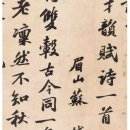 韻賦詩一首
眉山蘇
有雙轂古今同一
老凜然不知秋